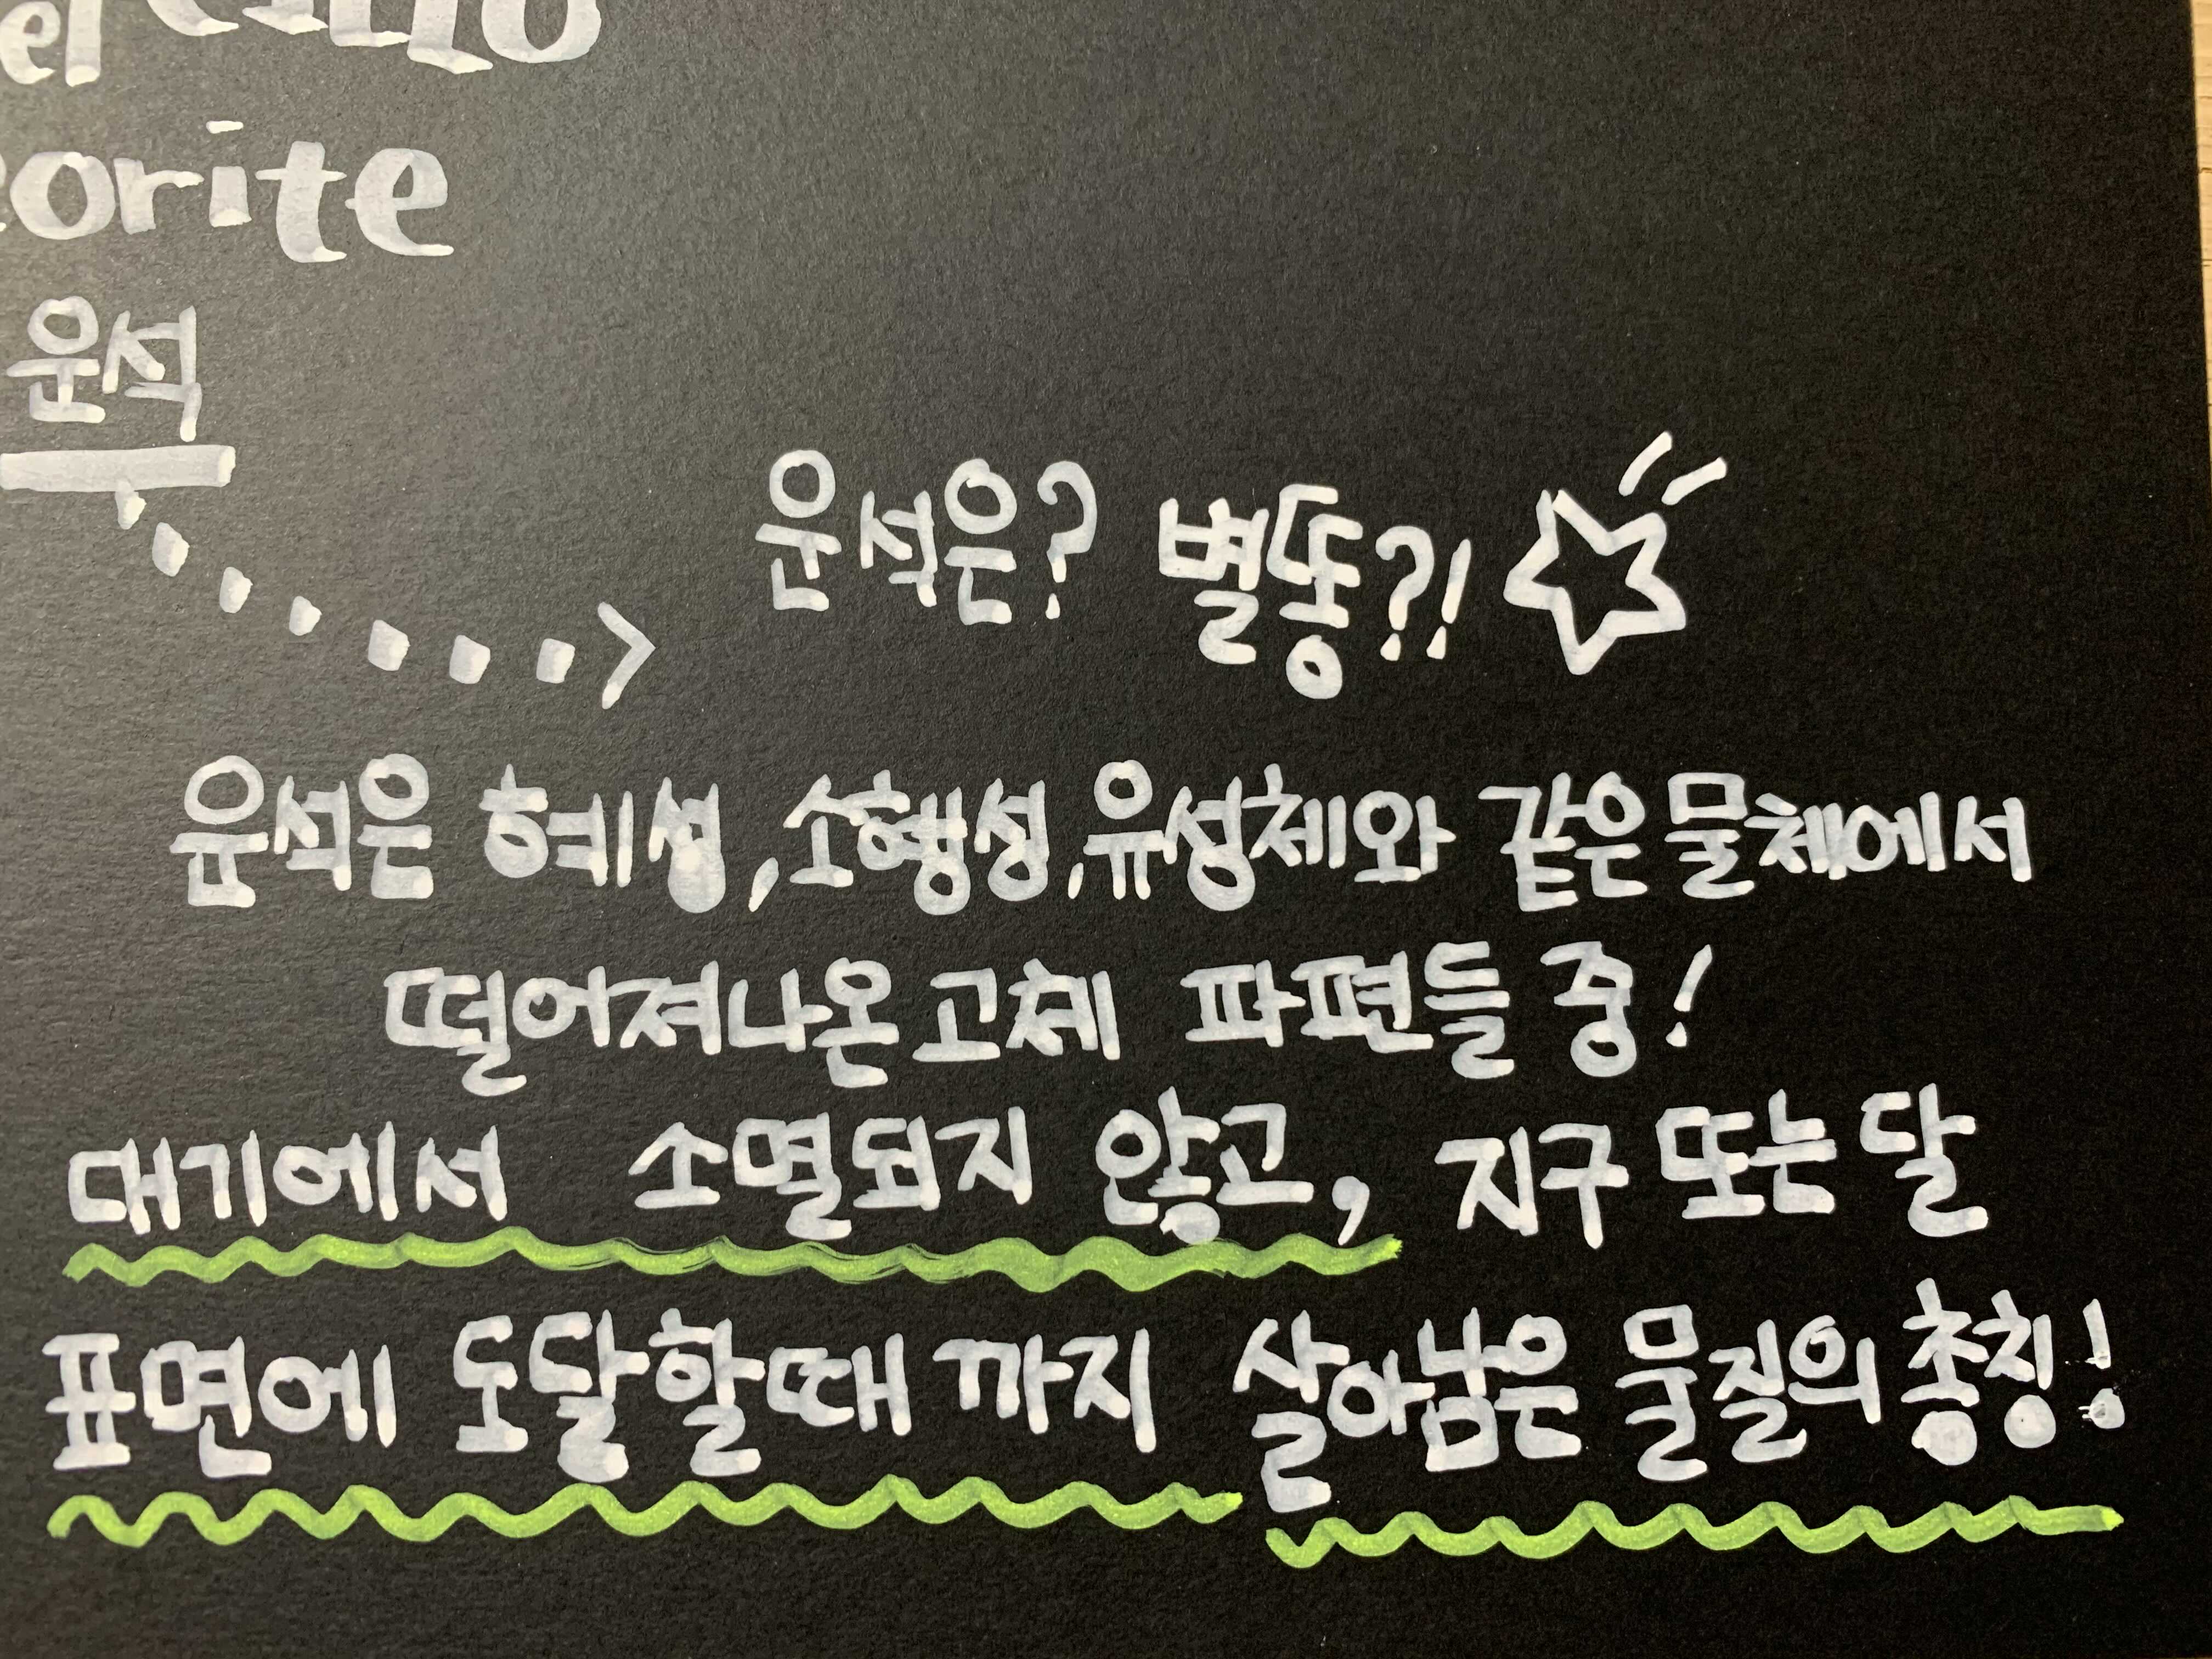 el
orite
운석
운석은? 별똥?!
운석은 혜성, 소행성, 유성체와 같은 물체에서
떨어져나온 고체 파편들 중!
대기에서 소멸되지 않고, 지구 또는 달
표면에 도달할때 까지 살아남은 물질의 총칭!